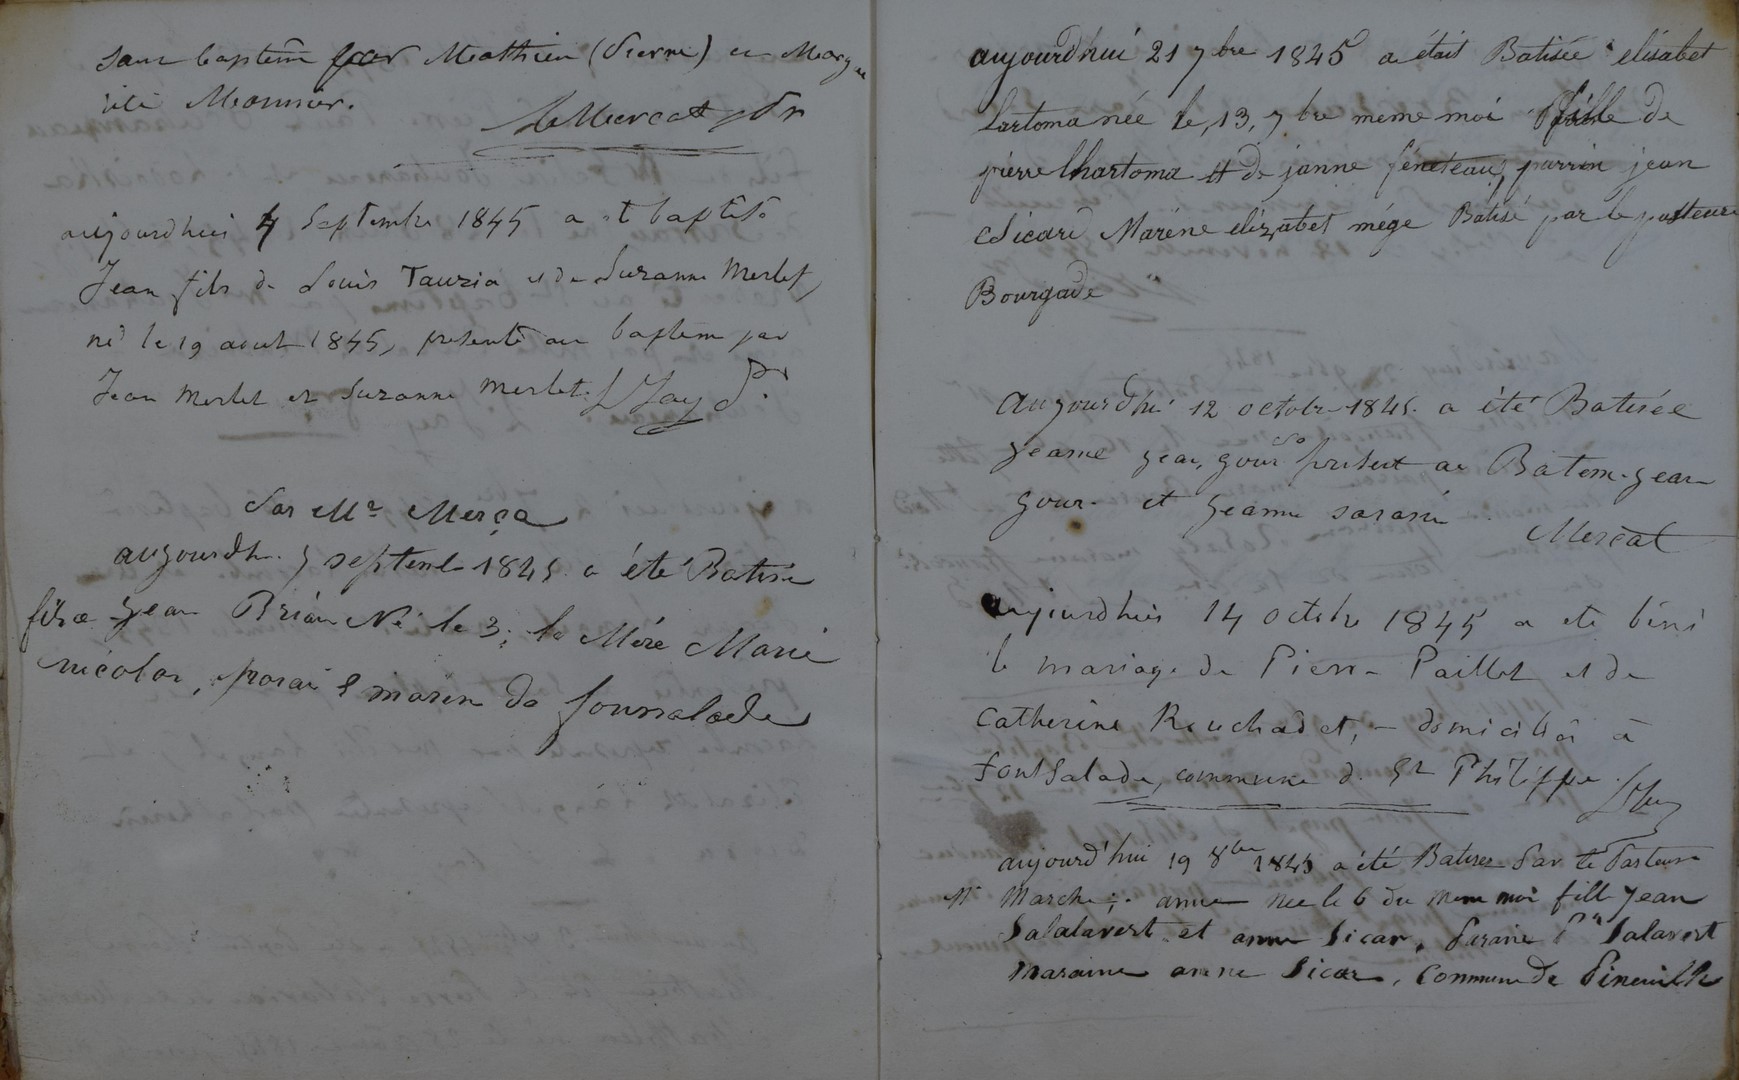 saint baptême par Mathieu (Pierre) et Margue
rite Meounier.
aujourdhui 4 Septembre 1845 a et baptisé
Jean fils de Louis Tauzia et de Suzanne Merlet,
né le 19 aout 1845, présenté au baptême par
Jean Merlet et Suzanne Merlet. L Jay pr
Par Mr Merça
aujourdh. 7 septembre 1845 a été Batisé
fils a Jean Brian Né le 3, la Mère Marie
nicolas, parai & maren da fonsalade
aujourd'hui 21 7bre 1845 a était Batisée elisabet
lartoma née le, 13, 7bre meme moi fille de
pierre lhartoma et de janne féneteau, parrin jean
Sicard Marène elizabet mége Batisé par le pasteure
Bourgade
aujourd'hui 12 octobre 1845 a été Batisée
Jeanne Jean gour présent au Batem Jean
gour et Jeanne sarasin
Mercat
aujourdhui 14 octobre 1845 a été béni
le mariage de Pierre Paillet et de
Catherine Rouchadet, domiciliés à
fontSalade, commune d. St Philippe
aujourd'hui 19 8bre 1845 a été Batisée Par le Pasteur
Mr Marche; anne née le 6 du meme moi fille Jean
Salalavert et anne Sicar, Paraine Pre Salavert
maraine anne Sicar, Commune de Pineuilh